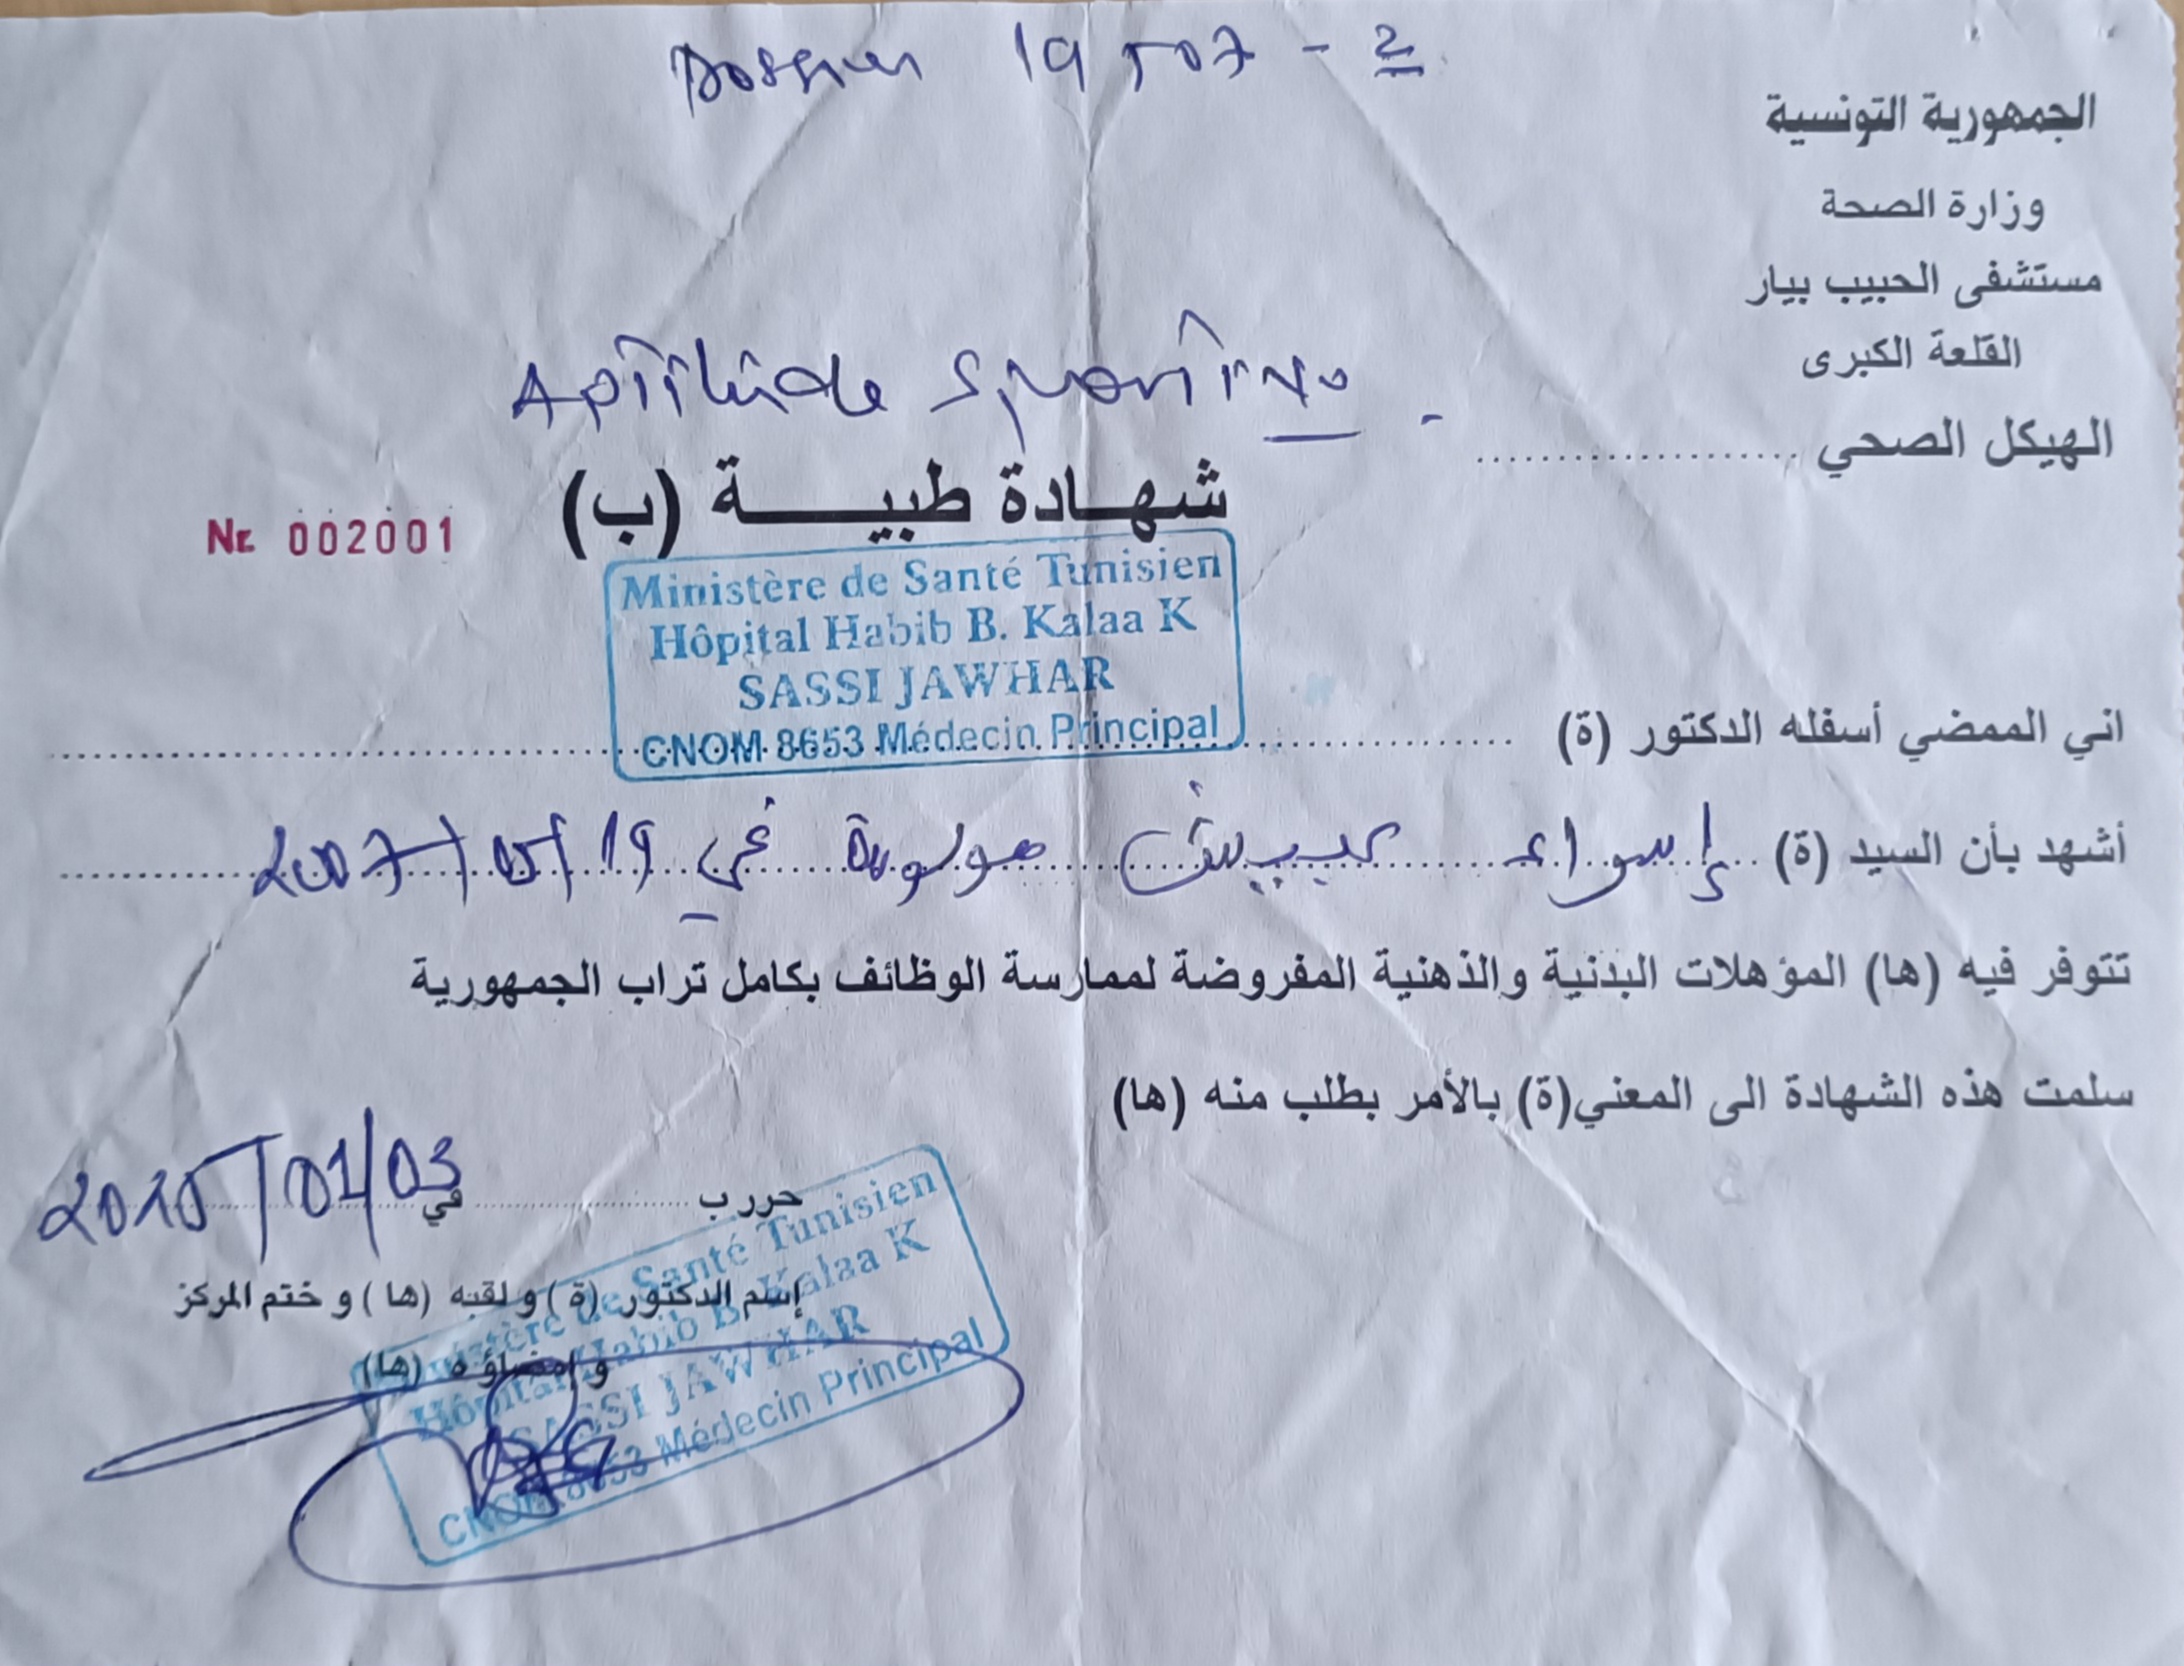 Dossier 19507 - 2
الجمهورية التونسية
وزارة الصحة
مستشفى الحبيب بيار
القلعة الكبرى
Aptitude Sportive.
الهيكل الصحي ....................
شهادة طبيـــــة (ب)
Nr. 002001
Ministère de Santé Tunisien
Hôpital Habib B. Kalaa K
SASSI JAWHAR
CNOM 8653 Médecin Principal
اني الممضي أسفله الدكتور (ة)
أشهد بأن السيد (ة) إسراء مولودة في 2007/05/19
تتوفر فيه (ها) المؤهلات البدنية والذهنية المفروضة لممارسة الوظائف بكامل تراب الجمهورية
سلمت هذه الشهادة الى المعني(ة) بالأمر بطلب منه (ها)
حرر ب .................... في 03/01/2015
إسم الدكتور (ة) و لقبه (ها) و ختم المركز
و إمضاؤه (ها)
Ministère de Santé Tunisien
Hôpital Habib B. Kalaa K
SASSI JAWHAR
CNOM 8653 Médecin Principal